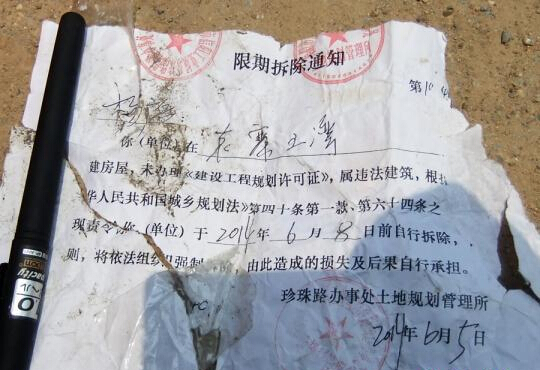 限期拆除通知
第10
杨
你（单位）在 东寨土湾
建房屋，未办理《建设工程规划许可证》，属违法建筑，根
华人民共和国城乡规划法》第四十条第一款、第六十四条之
现责令你（单位）于2014年6月8日前自行拆除，
则，将依法组织强制 ，由此造成的损失及后果自行承担。
珍珠路办事处土地规划管理所
2014年6月5日